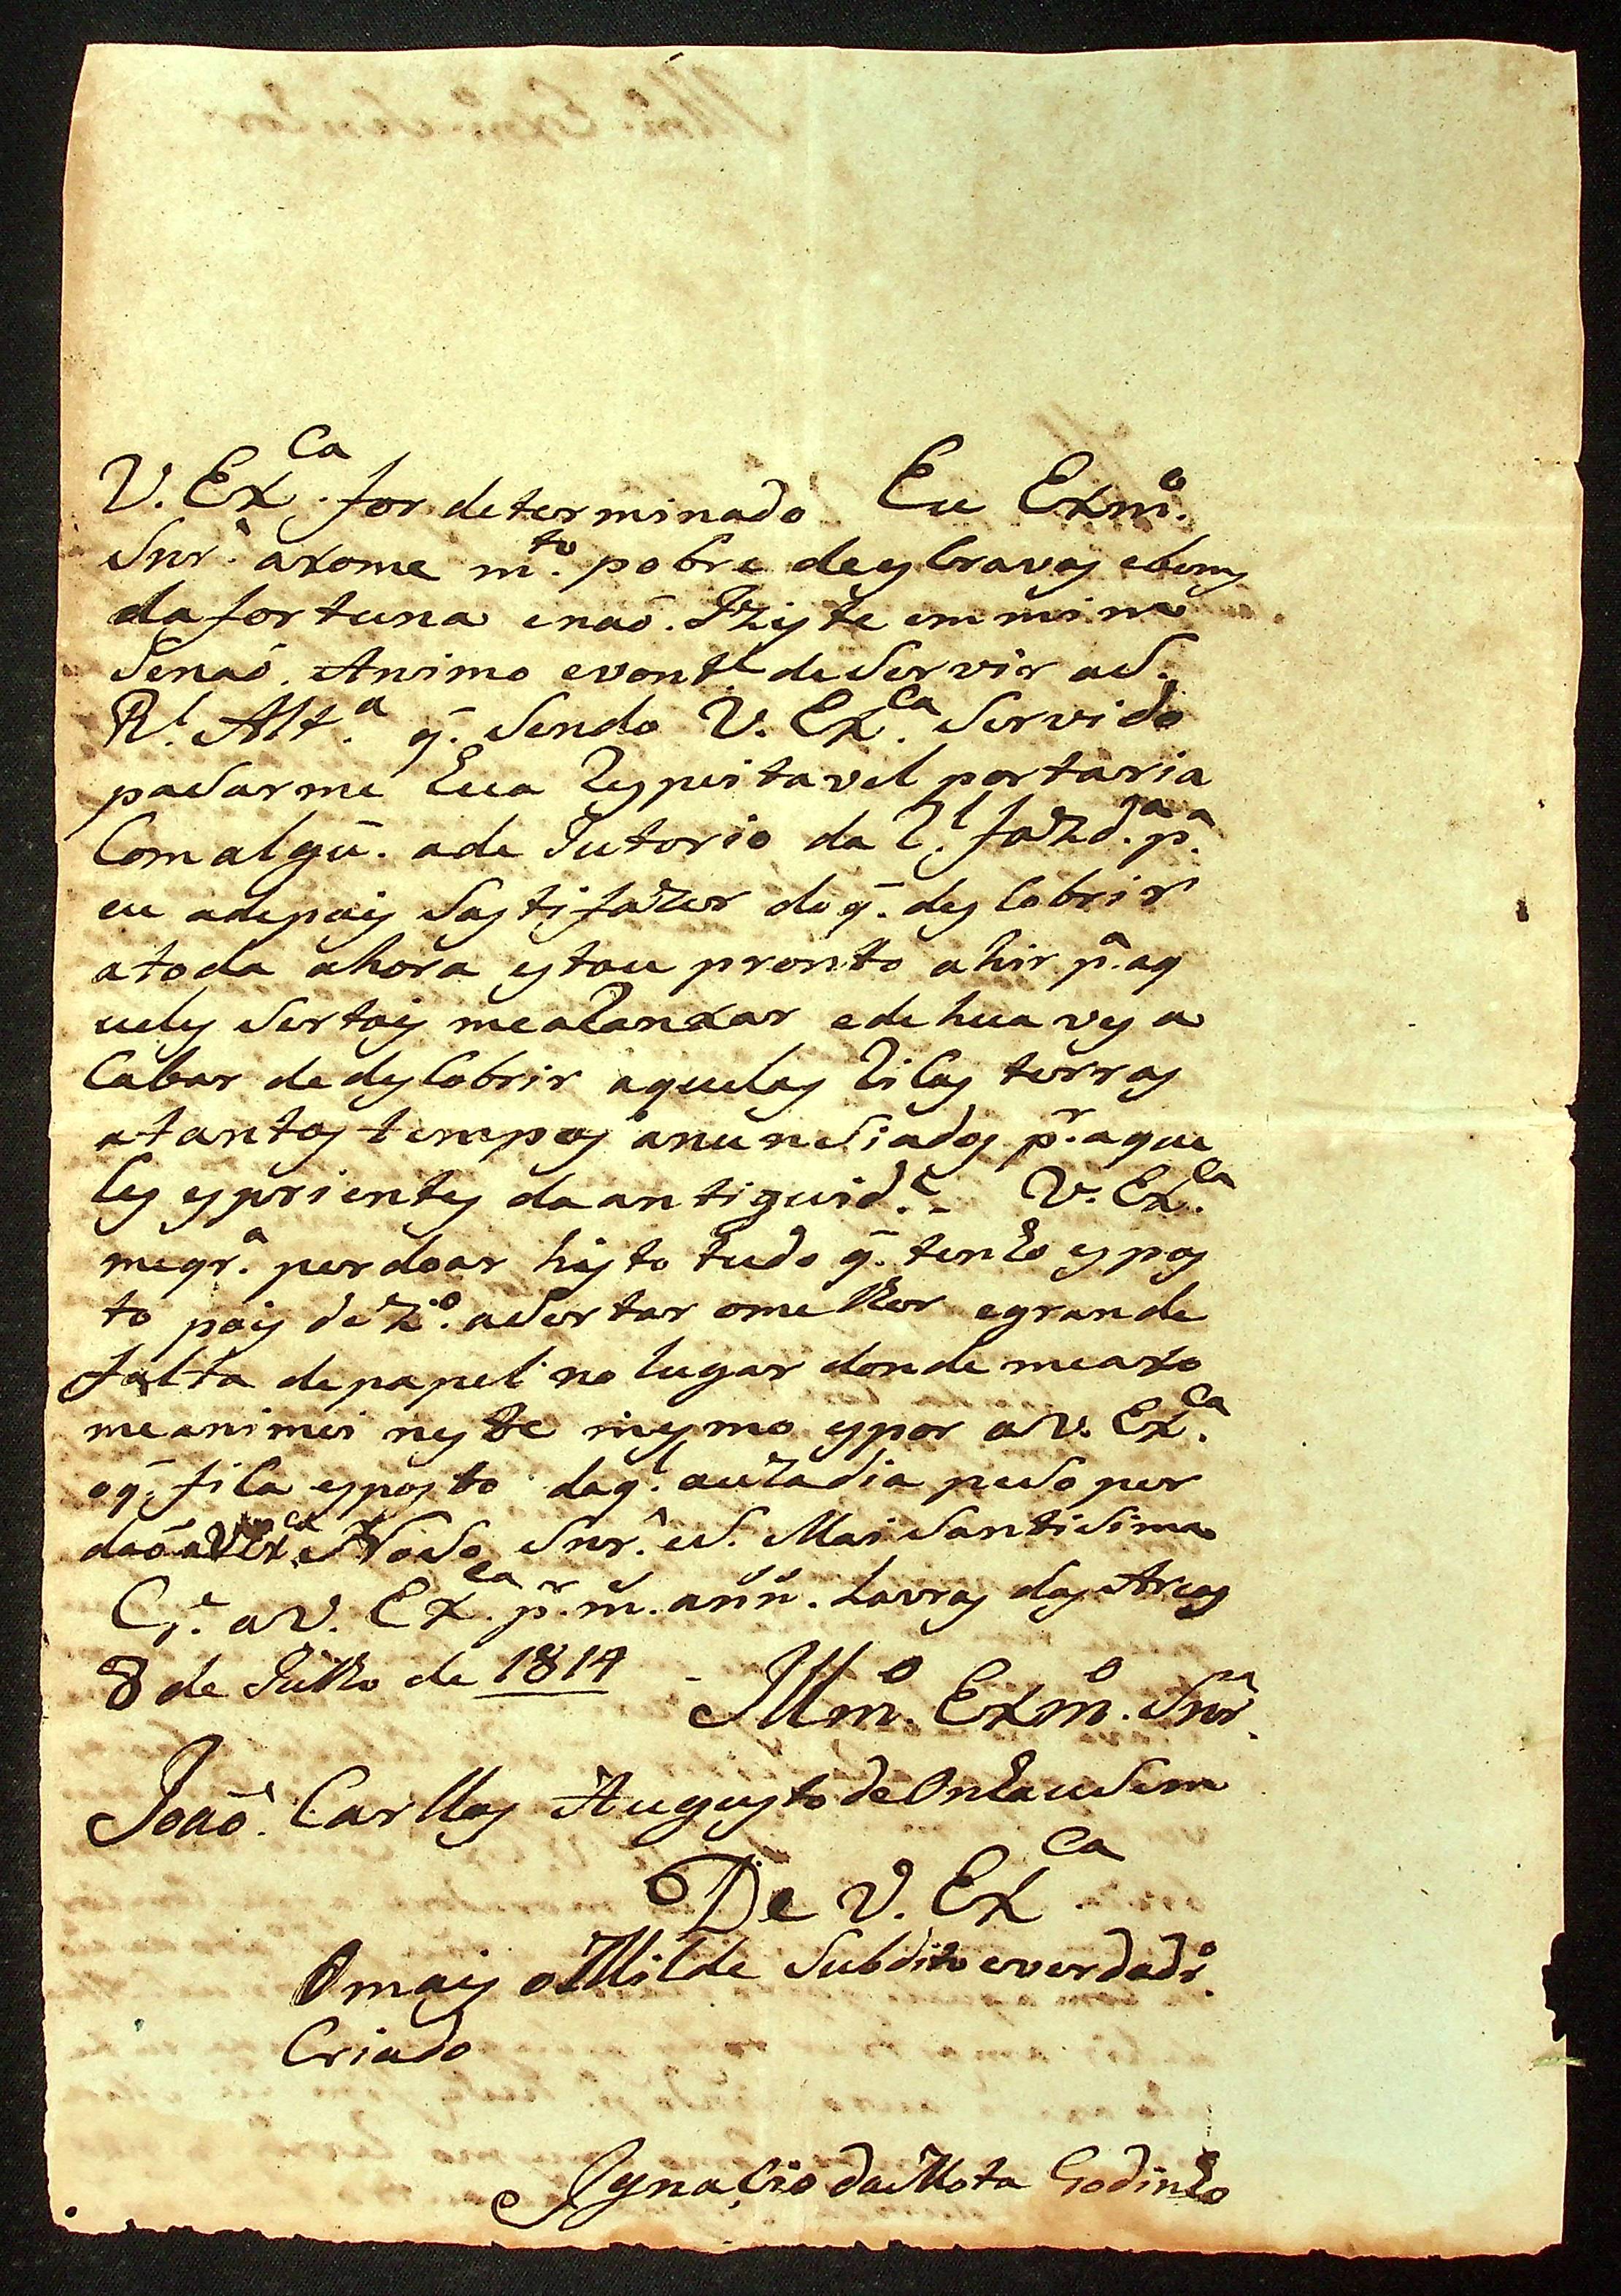 V. Ex.ca for determinado Eu Exmo.
Snr. axome mto. pobre de escravos e bens
da fortuna e naõ. Iziste em mim
Senaõ. Animo e vonte. de Servir a S.
Rl. Alt.a q̃. Sendo V. Ex.ca Servido
pasarme hua Respeitavel portaria
Com algũ. adeJutorio da Rl. fazda. pa.
eu adepois Sastifazer do q̃. des Cobrir
atoda ahora estou pronto ahir pa. aq
ueles Sertois mealanxar e de hua ves a
Cabar dedesCobrir aquelas Ricas terras
atantos tempos anunsiados pr. aque
les esprientes da antiguide. V. Exca.
meqra. perdoar histo tudo q̃. tenho espos
to pois dezo. asertar omelhor egrande
falta depapel no lugar donde meaxo
meanimei neste mesmo espor a V. Exca.
oq̃. fica esposto daql. auzadia peso per
daõ a V Exca. Noso Snr. e S. Mai Santisima
Ge. a V. Exca. pr. m̃. añn̄. Lavras das Areas
8 de Julho de 1819 Illmo. Exmo. Snr.
Joaõ. Carllos Augusto de Onhausem
De V. Exca.
O mais oMilde Subdito everdadro.
Criado
Ignaçio da Mota Godinho